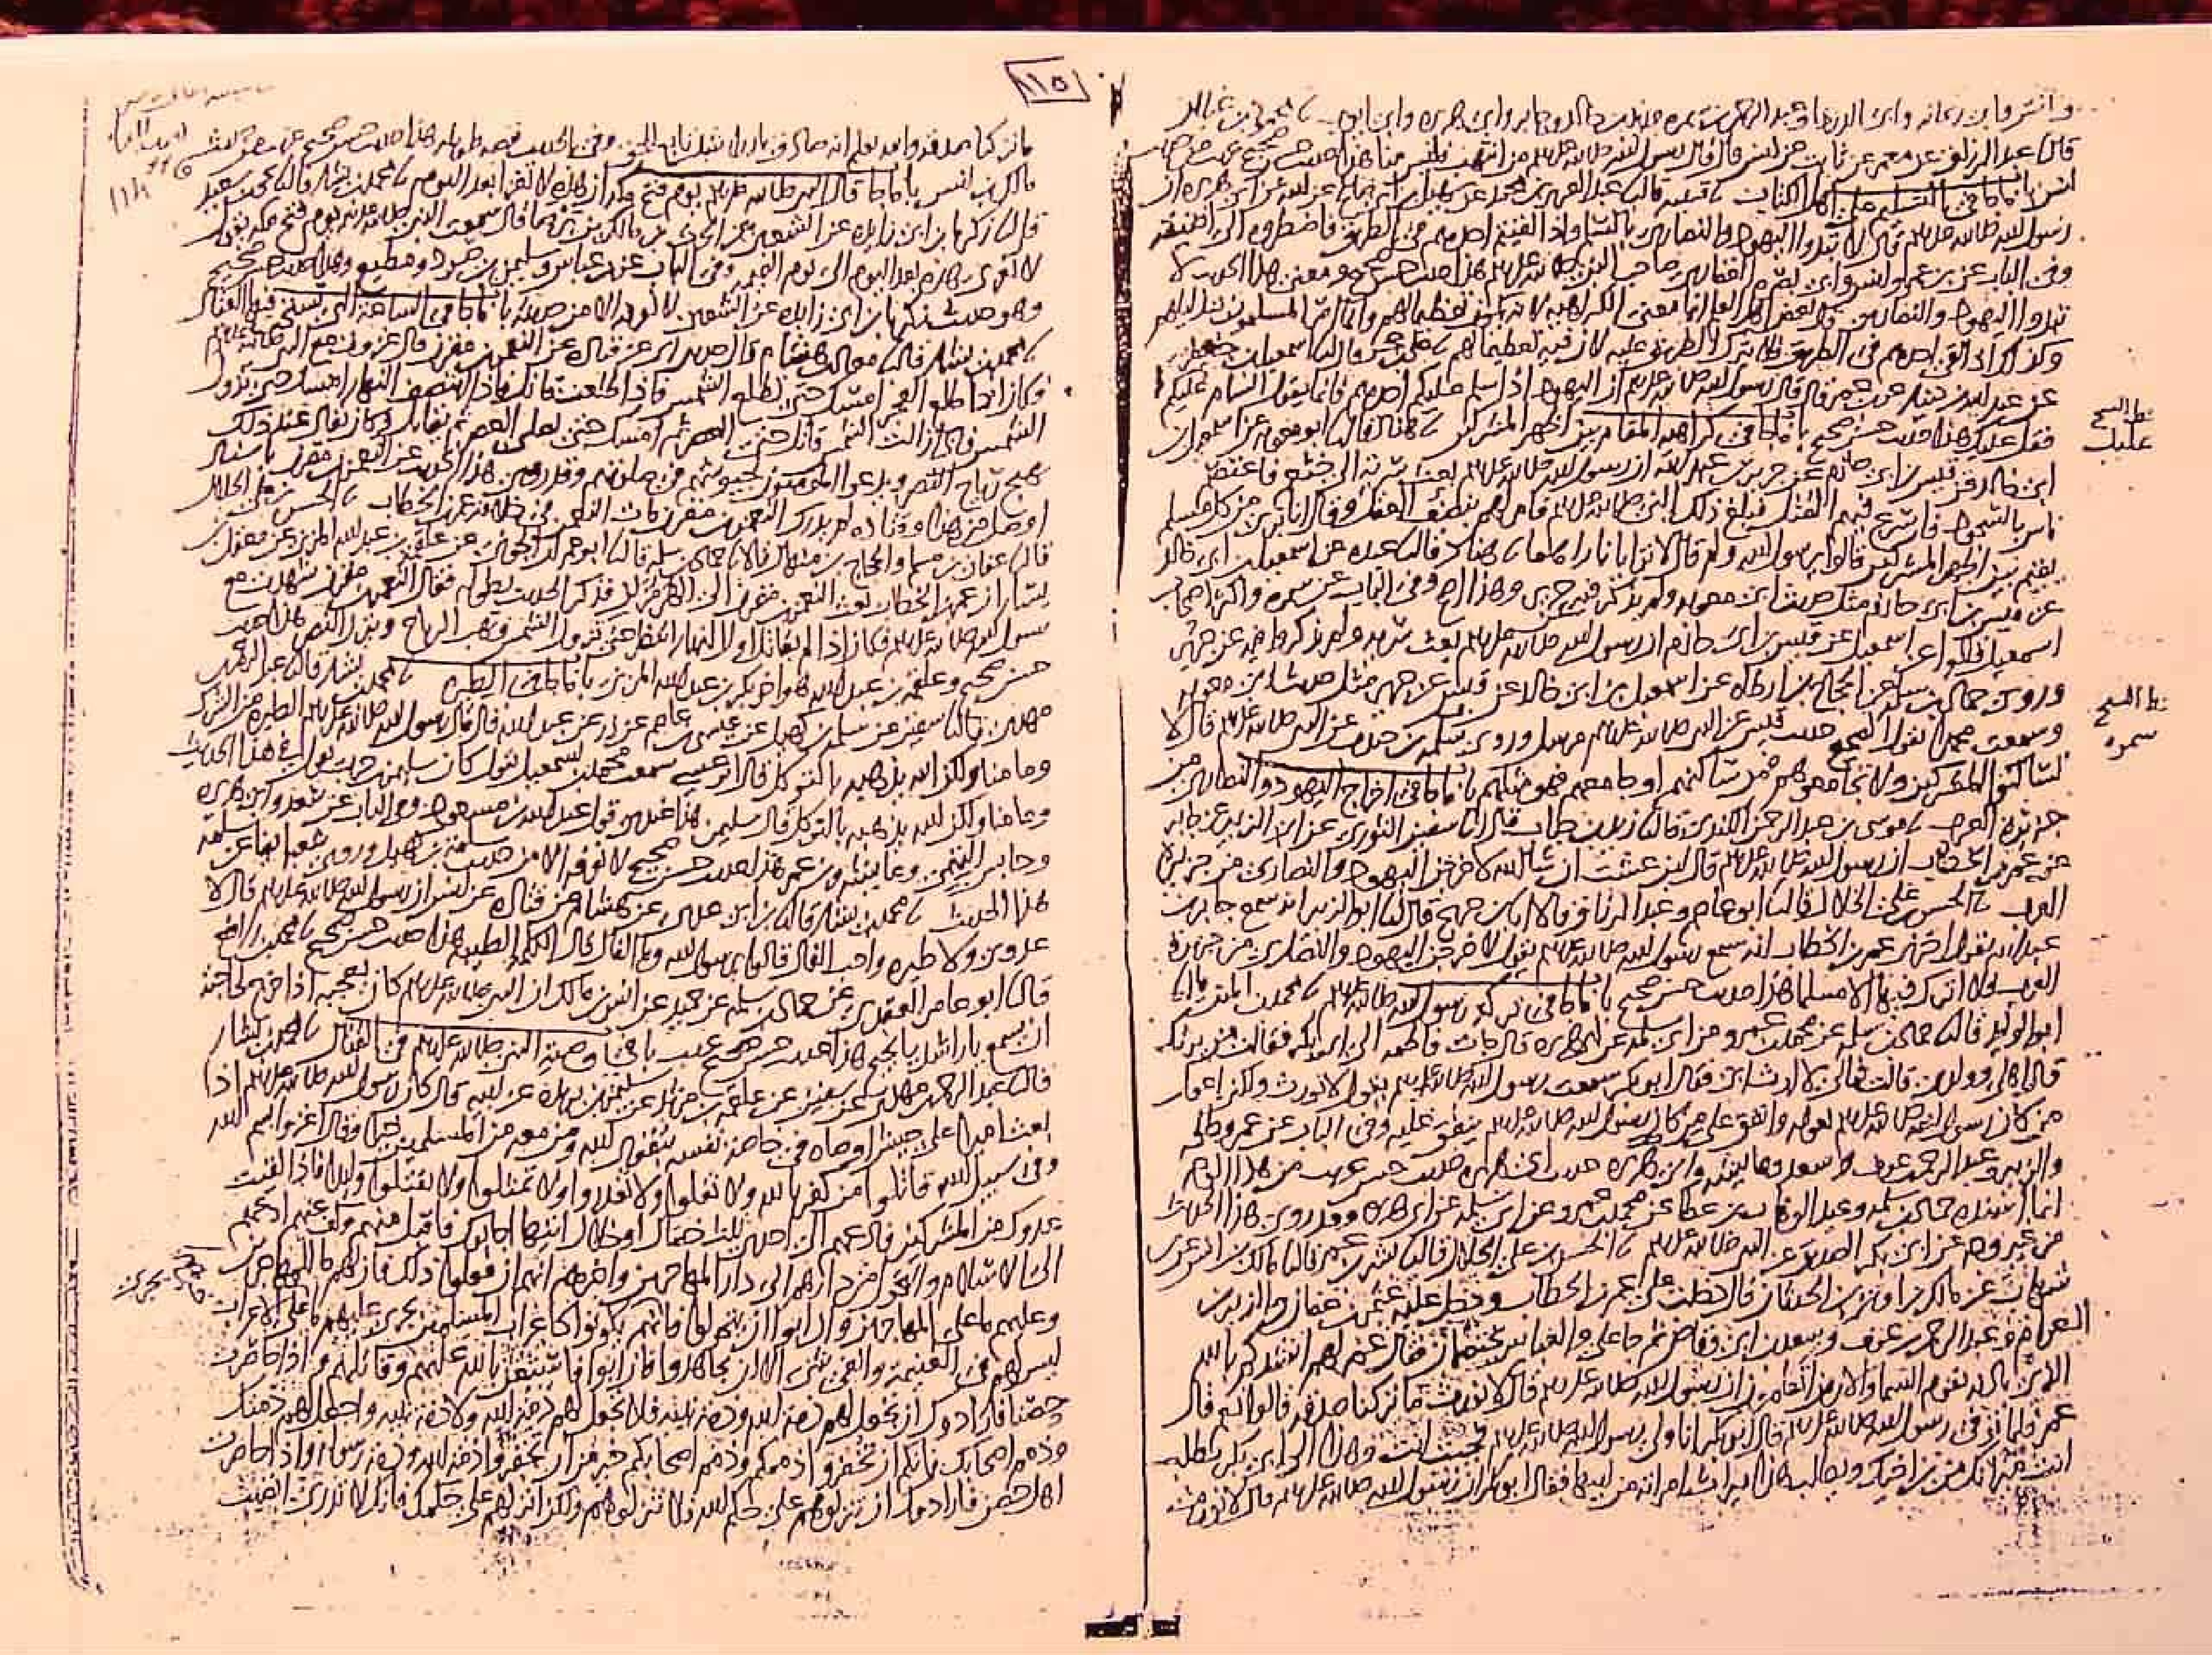 وانس وابن ريحانه وابى الدردا وعبد الرحمن بن سمره وزيد بن خالد وجابر وابى هريره وابى ايوب محمود بن غيلان
قال نا عبد الرزاق عن معمر عن ثابت عن انس قال قال رسول الله صلى الله عليه من انتهب فليس منا هذا حديث حسن صحيح غريب من حديث
انس باب ما جا فى التسليم على اهل الكتاب نا قتيبه قال نا عبد العزيز بن محمد عن سهيل بن ابى صالح عن ابيه عن ابى هريره ان
رسول الله صلى الله عليه قال لا تبدوا اليهود والنصارى بالسلم واذا لقيتم احدهم فى الطريق فاضطروه الى اضيقه
وفى الباب عن بن عمر وانس وابى بصره الغفارى صاحب النبى صلى الله عليه هذا حديث حسن صحيح ومعنى هذا الحديث لا
تبدوا اليهود والنصارى قال بعض اهل العلم انما معنى الكراهيه لانه يكون تعظيما لهم وانما امر المسلمون بتذليلهم
وكذلك اذا لقى احدهم فى الطريق فلا يترك الطريق عليه لان فيه تعظيما لهم نا على بن حجر قال نا اسمعيل بن جعفر
عن عبد الله بن دينار عن بن عمر قال قال رسول الله صلى الله عليه ان اليهود اذا سلم عليكم احدهم فانما يقول السام عليكم
فقل عليك هذا حديث حسن صحيح باب ما جا فى كراهيه المقام بين اظهر المشركين نا هناد قال نا ابو معويه عن اسمعيل بن
ابى خالد عن قيس بن ابى حازم عن جرير بن عبد الله ان رسول الله صلى الله عليه بعث سريه الى خثعم فاعتصم
ناس بالسجود فاسرع فيهم القتل فبلغ ذلك النبى صلى الله عليه فامر لهم بنصف العقل وقال انا برى من كل مسلم
يقيم بين اظهر المشركين قالوا يرسول الله ولم قال لا ترايا ناراهما نا هناد قال نا عبده عن اسمعيل بن ابى خالد
عن قيس بن ابى حازم مثل حديث ابى معويه ولم يذكر فيه جرير وهذا اصح وفى الباب عن سمره واكثر اصحاب
اسمعيل قالوا عن اسمعيل عن قيس بن ابى حازم ان رسول الله صلى الله عليه بعث سريه ولم يذكروا فيه عن جرير
وروى حماد بن سلمه عن الحجاج بن ارطاه عن اسمعيل بن ابى خالد عن قيس عن جرير مثل حديث ابى معويه
وسمعت محمدا يقول الصحيح حديث قيس عن النبى صلى الله عليه مرسل وروى سمره بن جندب عن النبى صلى الله عليه قال لا
تساكنوا المشركين ولا تجامعوهم فمن ساكنهم او جامعهم فهو مثلهم باب ما جا فى اخراج اليهود والنصارى من
جزيره العرب نا موسى بن عبد الرحمن الكندى قال نا زيد بن حباب قال انا سفين الثورى عن ابى الزبير عن جابر
عن عمر بن الخطاب ان رسول الله صلى الله عليه قال لين عشت ان شا الله لاخرجن اليهود والنصارى من جزيره
العرب نا الحسن بن على الخلال قال نا ابو عاصم وعبد الرزاق قالا انا بن جريج قال انا ابو الزبير انه سمع جابر بن
عبد الله يقول اخبرنى عمر بن الخطاب انه سمع رسول الله صلى الله عليه يقول لاخرجن اليهود والنصارى من جزيره
العرب فلا اترك فيها الا مسلما هذا حديث حسن صحيح باب ما جا فى تركه رسول الله صلى الله عليه نا محمد بن المثنى قال نا
ابو الوليد قال نا حماد بن سلمه عن محمد بن عمرو عن ابى سلمه عن ابى هريره قال جات فاطمه الى ابى بكر فقالت من يرثك
قال اهلى وولدى قالت فمالى لا ارث ابى فقال ابو بكر سمعت رسول الله صلى الله عليه يقول لا نورث ولكن اعول
من كان رسول الله صلى الله عليه يعوله وانفق على من كان رسول الله صلى الله عليه ينفق عليه وفى الباب عن عمر وطلحه
والزبير وعبد الرحمن بن عوف وسعد وعايشه وابى هريره حديث ابى هريره حديث حسن غريب من هذا الوجه
انما اسنده حماد بن سلمه وعبد الوهاب بن عطا عن محمد بن عمرو عن ابى سلمه عن ابى هريره وقد روى هذا الحديث
من غير وجه عن ابى بكر الصديق عن النبى صلى الله عليه نا الحسن بن على الخلال قال نا بشر بن عمر قال نا مالك بن انس عن ابن
شهاب عن مالك بن اوس بن الحدثان قال دخلت على عمر بن الخطاب ودخل عليه عثمن بن عفان والزبير بن
العوام وعبد الرحمن بن عوف وسعد بن ابى وقاص ثم جا على والعباس يختصمان فقال عمر لهم انشدكم بالله
الذى باذنه تقوم السما والارض اتعلمون ان رسول الله صلى الله عليه قال لا نورث ما تركنا صدقه قالوا نعم قال
عمر فلما توفى رسول الله صلى الله عليه قال ابو بكر انا ولى رسول الله صلى الله عليه فجيت انت وهذا الى ابى بكر تطلب
انت ميراثك من بن اخيك ويطلب هذا ميراث امراته من ابيها فقال ابو بكر ان رسول الله صلى الله عليه قال لا نورث
بط الشيخ
عليك
بط الشيخ
سمره
١١٥
ما تركنا صدقه والله يعلم انه صادق بار راشد تابع للحق وفى الحديث قصه طويله هذا حديث حسن صحيح غريب من حديث
مالك بن انس باب ما جا قال النبى صلى الله عليه يوم فتح مكه ان هذه لا تغزا بعد اليوم نا محمد بن بشار قال نا يحيى بن سعيد
قال نا زكريا بن ابى زايده عن الشعبى عن الحارث بن مالك بن برصا قال سمعت النبى صلى الله عليه يوم فتح مكه يقول
لا تغزى هذه بعد اليوم الى يوم القيمه وفى الباب عن بن عباس وسليمن بن صرد ومطيع وهذا حديث حسن صحيح
وهو حديث زكريا بن ابى زايده عن الشعبى لا نعرفه الا من حديثه باب ما جا فى الساعه التى يستحب فيها القتال
نا محمد بن بشار قال نا معاذ بن هشام قال حدثنى ابى عن قتاده عن النعمن بن مقرن قال غزوت مع النبى صلى الله عليه
فكان اذا طلع الفجر امسك حتى تطلع الشمس فاذا طلعت قاتل فاذا انتصف النهار امسك حتى تزول
الشمس فاذا زالت الشمس قاتل حتى العصر ثم امسك حتى يصلى العصر ثم يقاتل وكان يقال عند ذلك
تهيج رياح النصر ويدعوا المومنون لجيوشهم فى صلوتهم وقد روى هذا الحديث عن النعمن بن مقرن باسناد
اوصل من هذا وقتاده لم يدرك النعمن بن مقرن مات النعمن فى خلافه عمر بن الخطاب نا الحسن بن على الخلال
قال نا عفان بن مسلم والحجاج بن منهال قالا نا حماد بن سلمه قال نا ابو عمران الجونى عن علقمه بن عبد الله المزنى عن معقل بن
يسار ان عمر بن الخطاب بعث النعمن بن مقرن الى الهرمزان فذكر الحديث بطوله فقال النعمن بن مقرن شهدت مع
رسول الله صلى الله عليه فكان اذا لم يقاتل اول النهار انتظر حتى تزول الشمس وتهب الرياح وينزل النصر هذا حديث
حسن صحيح وعلقمه بن عبد الله هو اخو بكر بن عبد الله المزنى باب ما جا فى الطيره نا محمد بن بشار قال نا عبد الرحمن بن
مهدى قال نا سفين عن سلمه بن كهيل عن عيسى بن عاصم عن زر عن عبد الله قال قال رسول الله صلى الله عليه الطيره من الشرك
وما منا ولكن الله يذهبه بالتوكل قال ابو عيسى سمعت محمد بن اسمعيل يقول كان سليمن بن حرب يقول فى هذا الحديث
وما منا ولكن الله يذهبه بالتوكل قال سليمن هذا عندى قول عبد الله بن مسعود وفى الباب عن سعد وابى هريره
وحابس التميمى وعايشه وبن عمر هذا حديث حسن صحيح لا نعرفه الا من حديث سلمه بن كهيل وروى شعبه ايضا عن سلمه
هذا الحديث نا محمد بن بشار قال نا بن ابى عدى عن هشام عن قتاده عن انس ان رسول الله صلى الله عليه قال لا
عدوى ولا طيره واحب الفال قالوا يرسول الله وما الفال قال الكلمه الطيبه هذا حديث حسن صحيح نا محمد بن رافع
قال نا ابو عامر العقدى عن حماد بن سلمه عن حميد عن انس بن مالك ان النبى صلى الله عليه كان يعجبه اذا خرج لحاجته
ان يسمع يا راشد يا نجيح هذا حديث حسن صحيح غريب باب ما جا فى وصيه النبى صلى الله عليه فى القتال نا محمد بن بشار
قال نا عبد الرحمن بن مهدى عن سفين عن علقمه بن مرثد عن سليمن بن بريده عن ابيه قال كان رسول الله صلى الله عليه اذا
بعث اميرا على جيش اوصاه فى خاصه نفسه بتقوى الله ومن معه من المسلمين خيرا وقال اغزوا بسم الله
وفى سبيل الله قاتلوا من كفر بالله ولا تغلوا ولا تغدروا ولا تمثلوا ولا تقتلوا وليدا فاذا لقيت
عدوك من المشركين فادعهم الى احدى ثلث خصال او خلال ايتها اجابوك فاقبل منهم وكف عنهم ادعهم
الى الاسلام والتحول من دارهم الى دار المهاجرين واخبرهم انهم ان فعلوا ذلك فان لهم ما للمهاجرين
وعليهم ما على المهاجرين وان ابوا ان يتحولوا فاخبرهم انهم يكونوا كاعراب المسلمين يجرى عليهم ما على الاعراب
ليس لهم فى الغنيمه والفى شى الا ان يجاهدوا فان ابوا فاستعن بالله عليهم وقاتلهم واذا حاصرت
حصنا فارادوك ان تجعل لهم ذمه الله وذمه نبيه فلا تجعل لهم ذمه الله ولا ذمه نبيه واجعل لهم ذمتك
وذمم اصحابك فانكم ان تخفروا ذممكم وذمم اصحابكم خير من ان تخفروا ذمه الله وذمه رسوله واذا حاصرت
اهل حصن فارادوك ان تنزلوهم على حكم الله فلا تنزلوهم ولكن انزلهم على حكمك فانك لا تدرى اتصيب